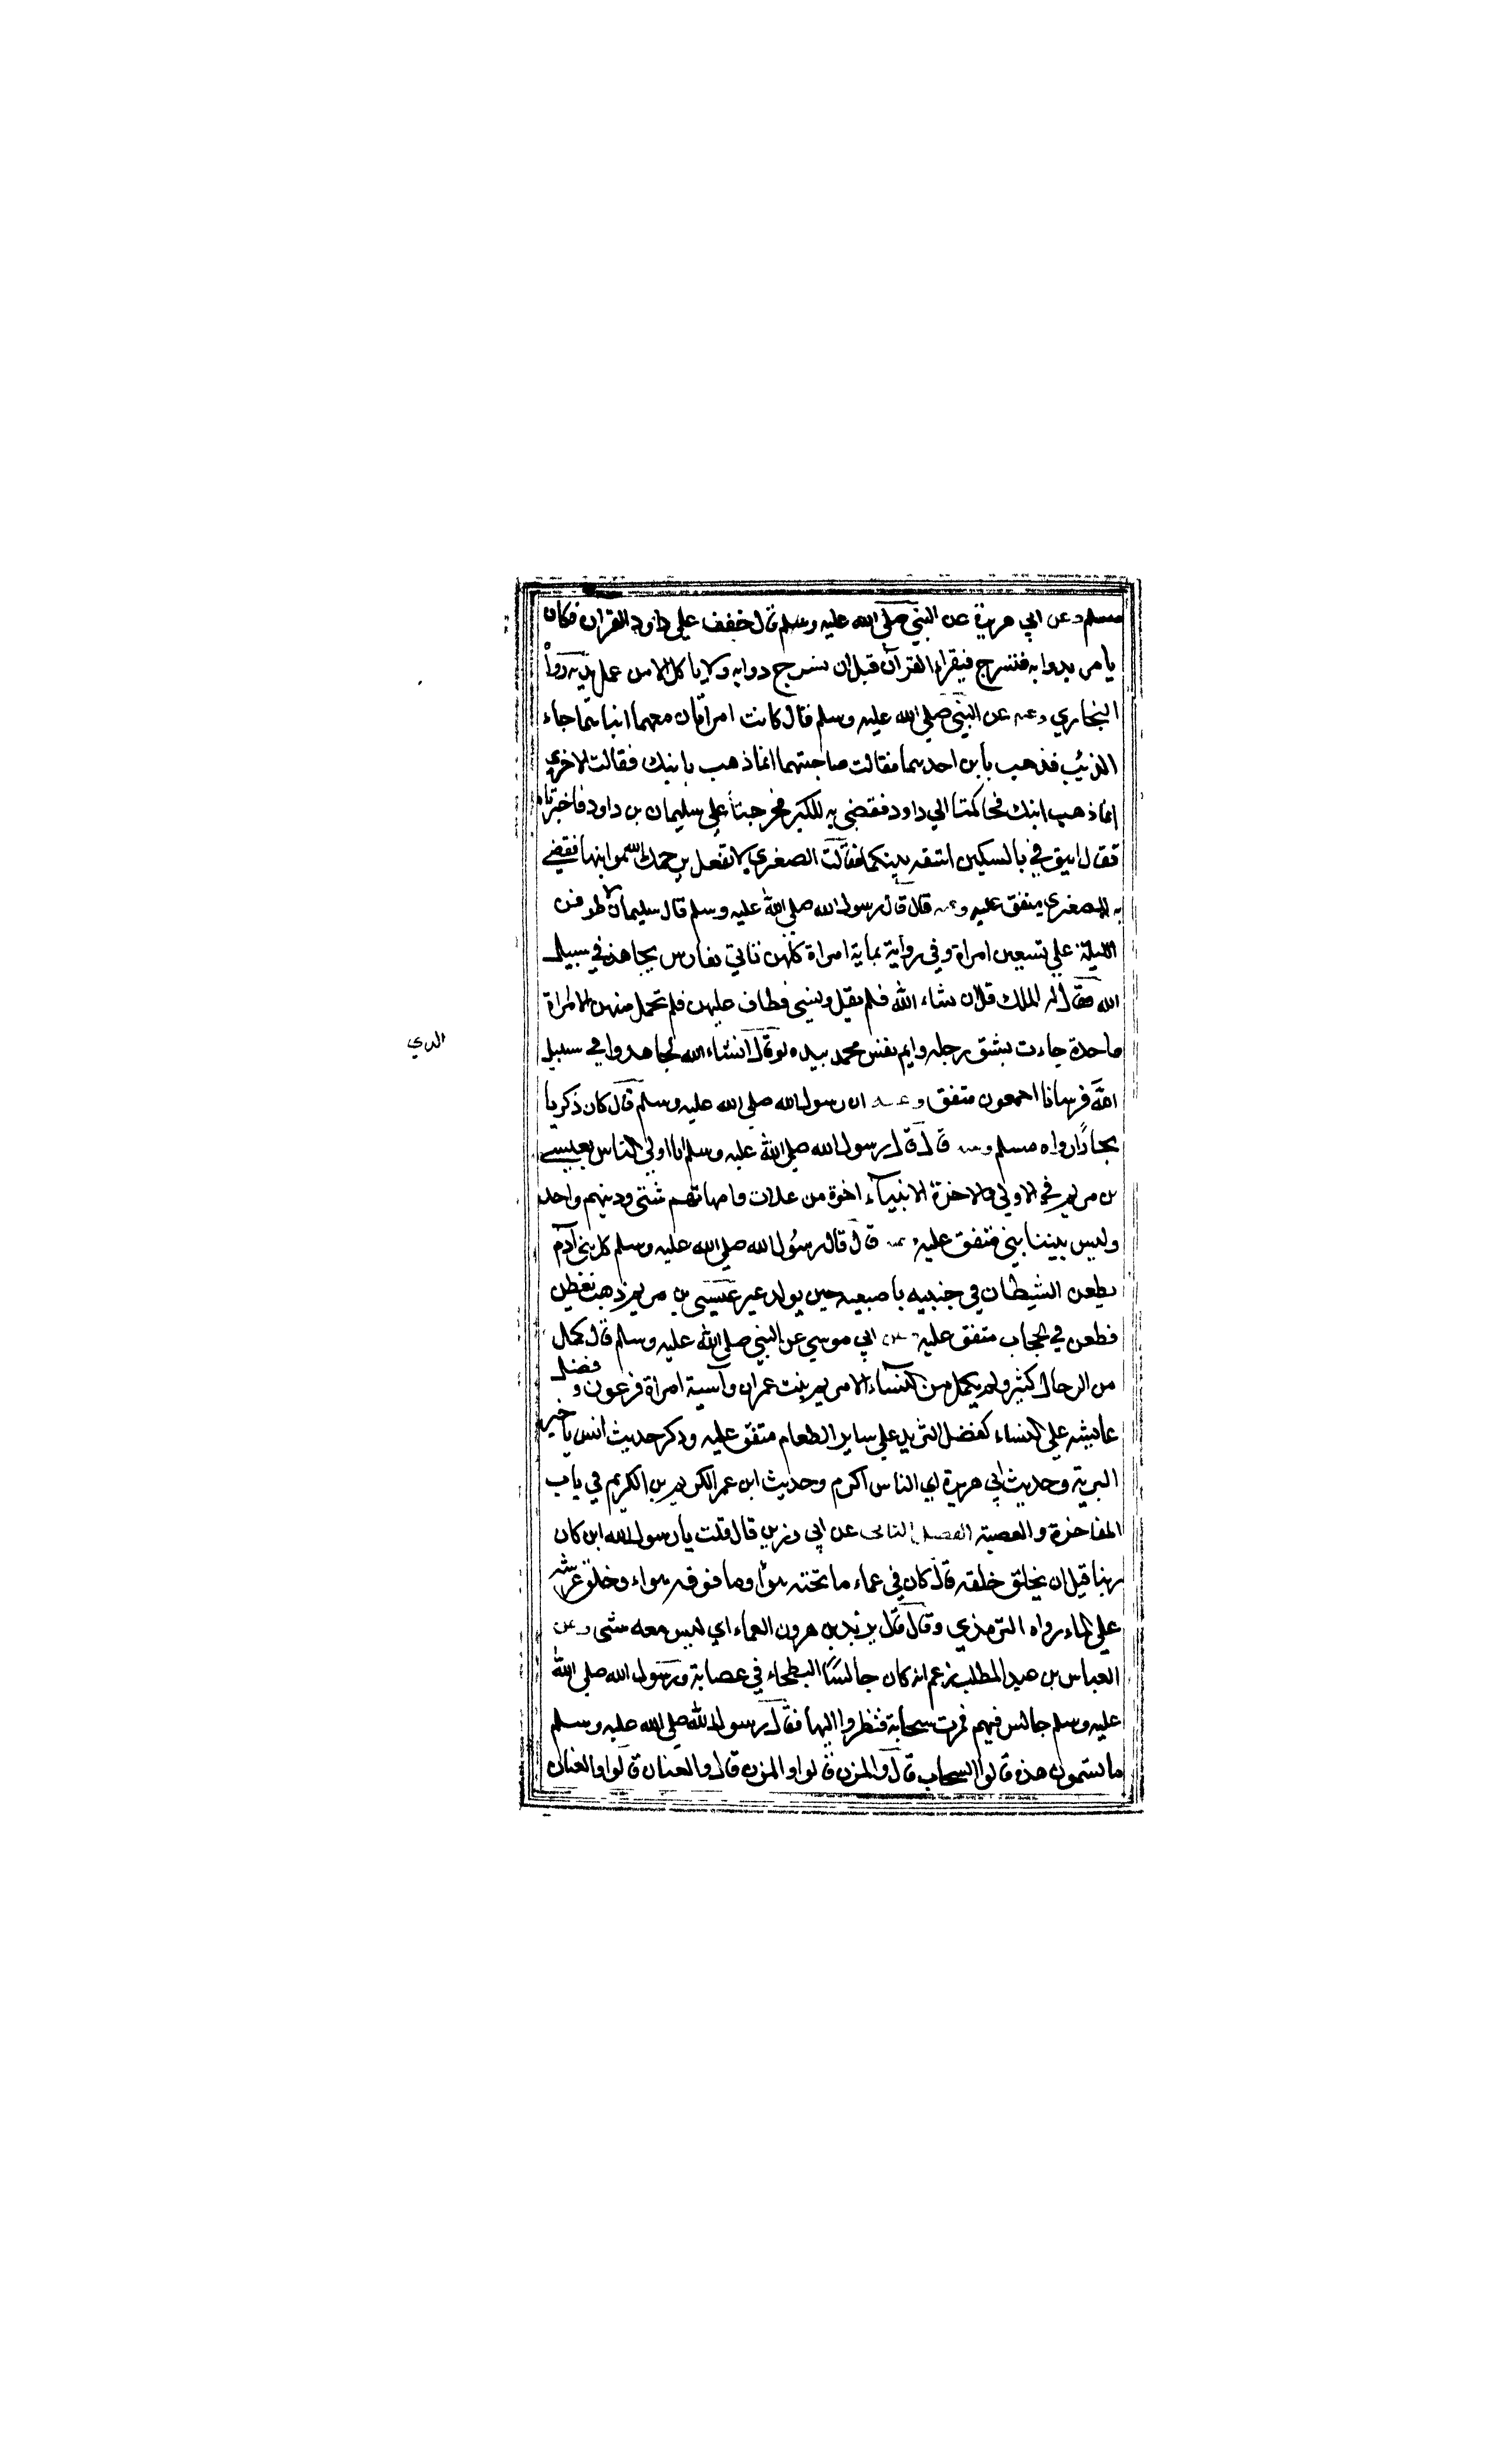 مسلم وعن ابي هريرة عن النبي صلي الله عليه وسلم قال خفف علي داود القران فكان
يامر بدوابه فتسرج فيقراء القرآن قبل ان تسرج دوابه ولا ياكل الا من عمل يديه رواه
البخاري وعنه عن النبي صلي الله عليه وسلم قال كانت امراتان معهما ابناهما جاء
الذئب فذهب بابن احديهما فقالت صاحبتهما انما ذهب بابنك فقالت الاخري
انما ذهب ابنك فتحاكمتا الي داود فقضي به للكبر فخرجتا علي سليمان بن داود فاخبرتاه
فقال ايتوني بالسكين اشقه بينكما فقالت الصغري لا تفعل يرحمك الله هو ابنها فقضي
به للصغري متفق عليه وعنه قال قال رسول الله صلي الله عليه وسلم قال سليمان لاطوفن
الليلة علي تسعين امراة وفي رواية بماية امراة كلهن تاتي بفارس يجاهد في سبيل
الله فقال له الملك قل ان شاء الله فلم يقل ونسي فطاف عليهن فلم تحمل منهن الا امراة
واحدة جاءت بشق رجل وايم نفس محمد بيده لو قال انشاء الله لجاهدوا في سبيل
الذي
الله فرسانا اجمعون متفق وعنه ان رسول الله صلي الله عليه وسلم قال كان زكريا
نجارا رواه مسلم وعنه قال قال رسول الله صلي الله عليه وسلم انا اولي الناس بعيسي
بن مريم في الاولي والاخرة الانبياء اخوة من علات وامهاتهم شتي ودينهم واحد
وليس بيننا نبي متفق عليه وعنه قال قال رسول الله صلي الله عليه وسلم كل بني آدم
يطعن الشيطان في جنبيه باصبعيه حين يولد غير عيسي بن مريم ذهب يطعن
فطعن في الحجاب متفق عليه وعن ابي موسي عن النبي صلي الله عليه وسلم قال كمل
من الرجال كثير ولم يكمل من النساء الا مريم بنت عمران وآسية امراة فرعون وفضل
عايشه علي النساء كفضل الثريد علي ساير الطعام متفق عليه وذكر حديث انس يا خير
البرية وحديث ابي هريرة اي الناس اكرم وحديث ابن عمر الكريم بن الكريم في باب
المفاخرة والعصبية الفصل الثاني عن ابي رزين قال قلت يا رسول الله اين كان
ربنا قبل ان يخلق خلقه قال كان في عماء ما تحته هواء وما فوقه هواء وخلق عرشه
علي الماء رواه الترمذي وقال قال يزيد بن هرون العماء اي ليس معه شي وعن
العباس بن عبد المطلب زعم انه كان جالسا البطحاء في عصابة ورسول الله صلي الله
عليه وسلم جالس فيهم فمرت سحابة فنظروا اليها فقال رسول الله صلي الله عليه وسلم
ما تسمون هذه قالوا السحاب قال والمزن قالوا والمزن قال والعنان قالوا والعنان